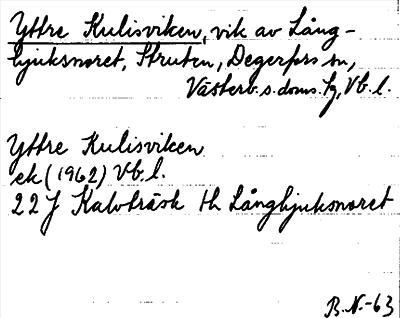 Yttre Kulisviken, vik av Lång-
hjuksnoret, Struten, Degerfors sn,
Västerb. s. doms. tg, Vb. l.
Yttre Kulisviken
ek (1962) Vb. l.
22 J Kalvträsk th Långhjuksnoret
B.N.-63